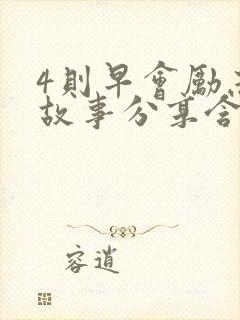 4則早會勵
故事分享含
容道